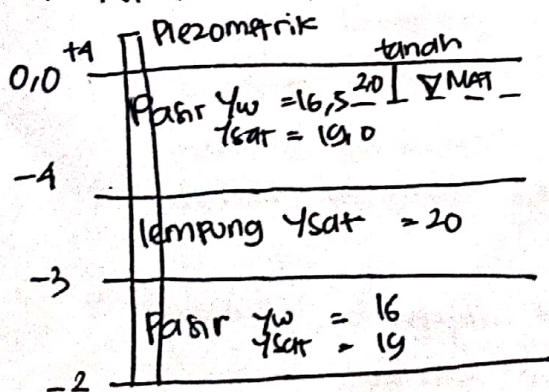 +4 Piezometrik
0,0 tanah
Pasir γw = 16,5 2,0 ∇ MAT
γsat = 19,0
-4
lempung γsat = 20
-3
Pasir γw = 16
γsat = 19
-2